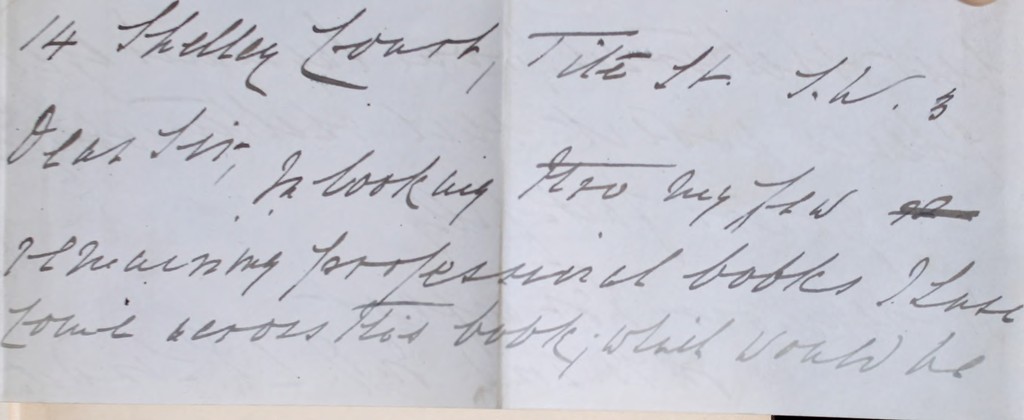 14 Shelley Court, Tite St. S.W. 3
Dear Sir, In looking thro my few
remaining professional books I have
come across this book, which would be